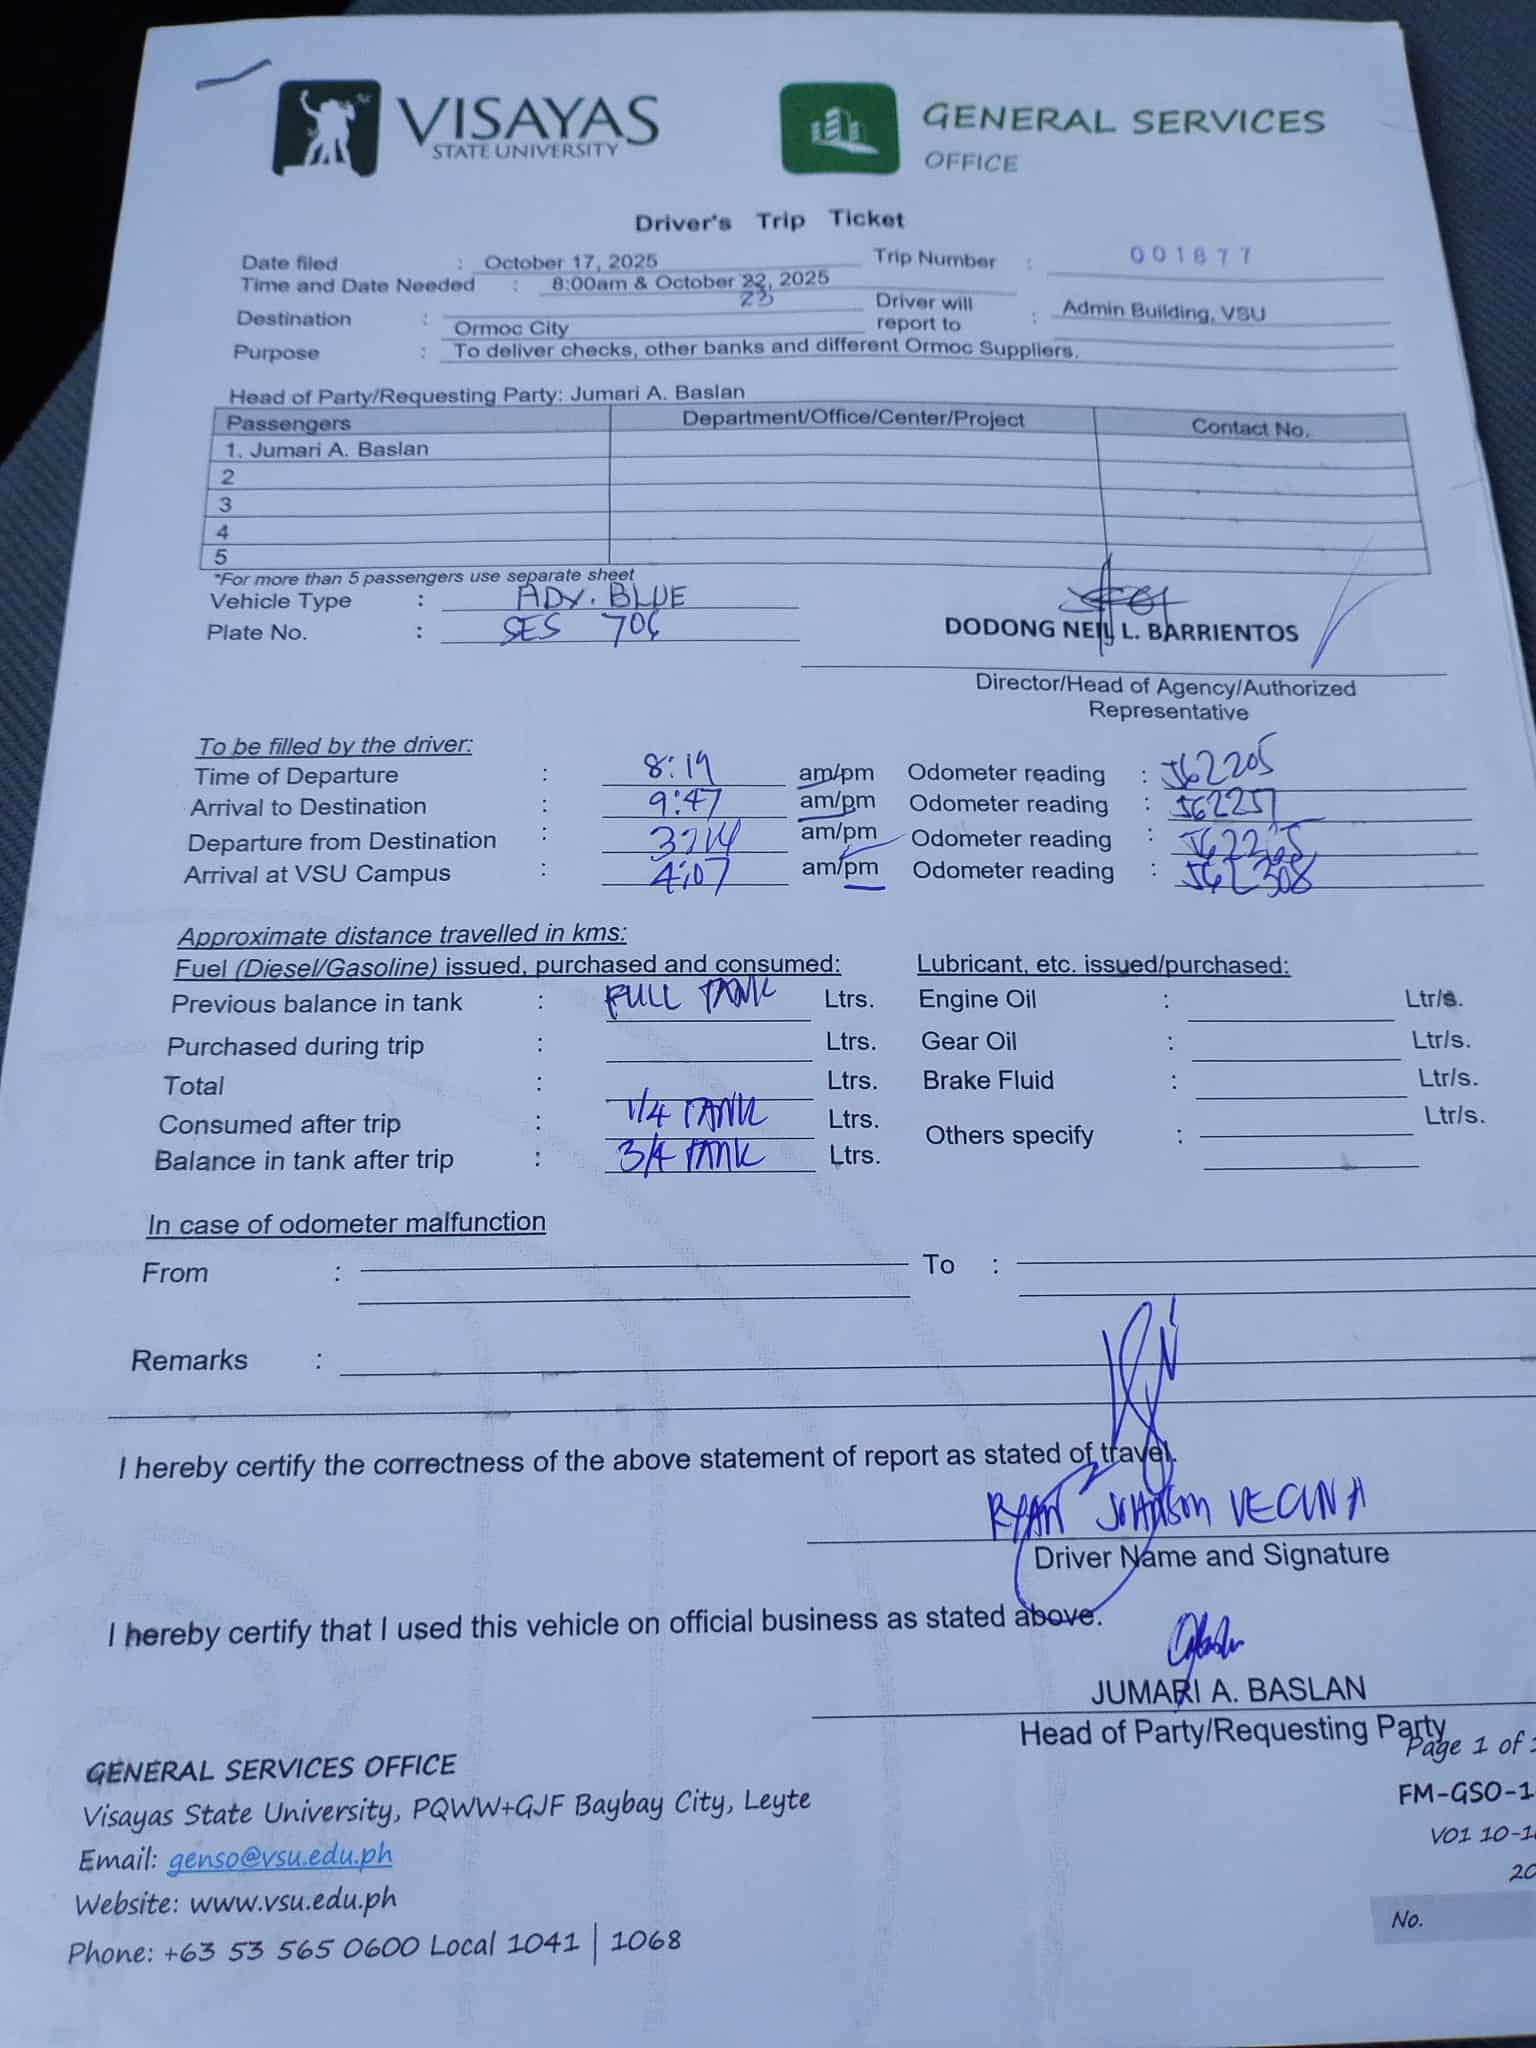 VISAYAS
STATE UNIVERSITY
GENERAL SERVICES
OFFICE
Driver's Trip Ticket
Date filed : October 17, 2025 Trip Number : 001877
Time and Date Needed : 8:00am & October 22, 2025
23
Destination : Ormoc City Driver will report to : Admin Building, VSU
Purpose : To deliver checks, other banks and different Ormoc Suppliers.
Head of Party/Requesting Party: Jumari A. Baslan
Passengers Department/Office/Center/Project Contact No.
1. Jumari A. Baslan
2
3
4
5
*For more than 5 passengers use separate sheet
Vehicle Type : ADV. BLUE
Plate No. : SES 706
DODONG NEIL L. BARRIENTOS
Director/Head of Agency/Authorized
Representative
To be filled by the driver:
Time of Departure : 8:19 am/pm Odometer reading : 562205
Arrival to Destination : 9:47 am/pm Odometer reading : 562257
Departure from Destination : 3:14 am/pm Odometer reading :
Arrival at VSU Campus : 4:07 am/pm Odometer reading : 562308
Approximate distance travelled in kms:
Fuel (Diesel/Gasoline) issued, purchased and consumed: Lubricant, etc. issued/purchased:
Previous balance in tank : FULL TANK Ltrs. Engine Oil : Ltr/s.
Purchased during trip : Ltrs. Gear Oil : Ltr/s.
Total : Ltrs. Brake Fluid : Ltr/s.
Consumed after trip : 1/4 TANK Ltrs. Others specify : Ltr/s.
Balance in tank after trip : 3/4 TANK Ltrs.
In case of odometer malfunction
From : To :
Remarks :
I hereby certify the correctness of the above statement of report as stated of travel.
RYAN JOHNSON VECINA
Driver Name and Signature
I hereby certify that I used this vehicle on official business as stated above.
JUMARI A. BASLAN
Head of Party/Requesting Party
Page 1 of
GENERAL SERVICES OFFICE
Visayas State University, PQWW+GJF Baybay City, Leyte
Email: genso@vsu.edu.ph
Website: www.vsu.edu.ph
Phone: +63 53 565 0600 Local 1041 | 1068
FM-GSO-1
V01 10-1
20
No.